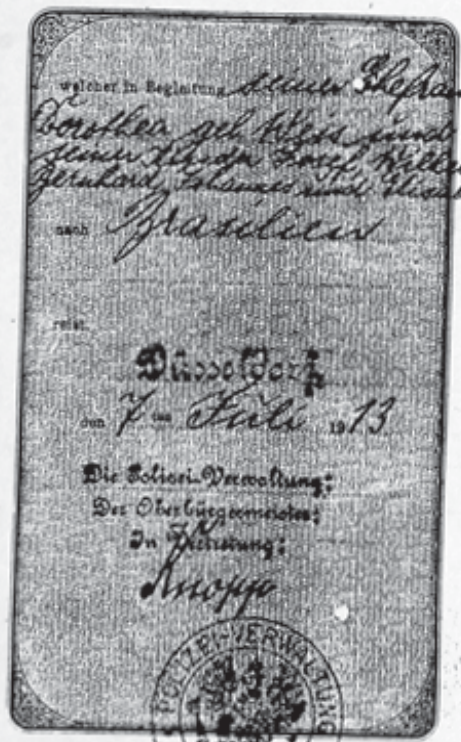 welcher in Begleitung seiner Ehefrau
Dorothea geb Weis und
seiner Kinder Josef, Willy
Bernhard, Johannes und
nach Brasilien
reist.
Düsseldorf
den 7 ten Juli 1913
Die Polizei-Verwaltung:
Der Oberbürgermeister:
In Vertretung:
Knopp
POLIZEI-VERWALTUNG